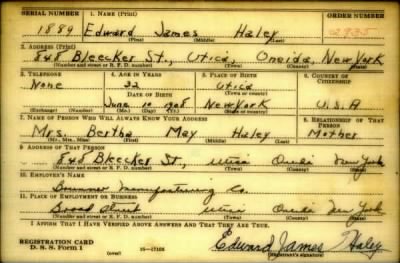 SERIAL NUMBER 1. NAME (Print) ORDER NUMBER
1889 Edward James Haley 2935
(First) (Middle) (Last)
2. ADDRESS (Print)
848 Bleecker St., Utica, Oneida, New York
(Number and street or R. F. D. number) (Town) (County) (State)
3. TELEPHONE 4. AGE IN YEARS 5. PLACE OF BIRTH 6. COUNTRY OF CITIZENSHIP
None 32 Utica
DATE OF BIRTH (Town or county)
June 10 1908 New York U.S.A
(Exchange) (Number) (Mo.) (Day) (Yr.) (State or country)
7. NAME OF PERSON WHO WILL ALWAYS KNOW YOUR ADDRESS 8. RELATIONSHIP OF THAT PERSON
Mrs. Bertha May Haley Mother
(Mr., Mrs., Miss) (First) (Middle) (Last)
9. ADDRESS OF THAT PERSON
848 Bleecker St., Utica Oneida New York
(Number and street or R. F. D. number) (Town) (County) (State)
10. EMPLOYER'S NAME
Manufacturing Co.
11. PLACE OF EMPLOYMENT OR BUSINESS
Broad Street Utica Oneida New York
(Number and street or R. F. D. number) (Town) (County) (State)
I AFFIRM THAT I HAVE VERIFIED ABOVE ANSWERS AND THAT THEY ARE TRUE.
REGISTRATION CARD
D. S. S. FORM 1 (over) 16—17105 Edward James Haley
(Registrant's signature)